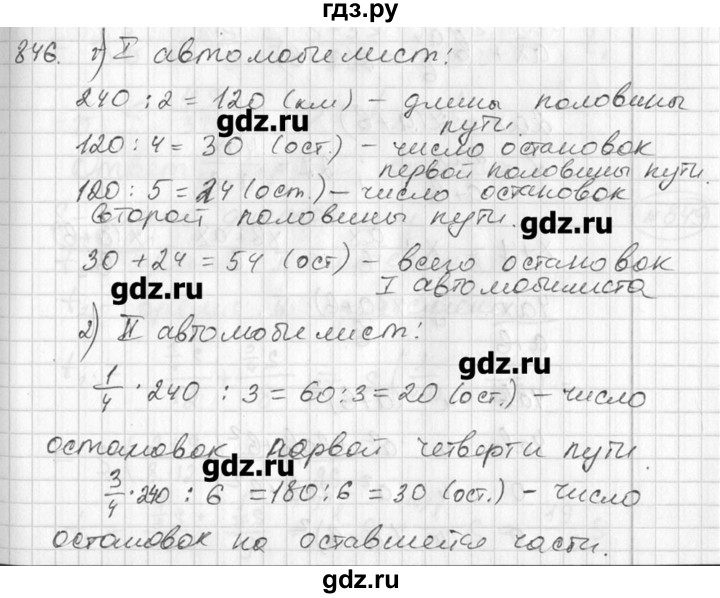 гдз.ру
846. 1) I автомобилист:
240 : 2 = 120 (км) – длины половины
пути.
gdz.ru
120 : 4 = 30 (ост.) – число остановок
первой половины пути.
120 : 5 = 24 (ост.) – число остановок
второй половины пути.
gdz.ru
30 + 24 = 54 (ост) – всего остановок
I автомобилиста
gdz.ru
2) II автомобилист:
gdz.ru
1/4 · 240 : 3 = 60 : 3 = 20 (ост.) – число
остановок первой четверти пути.
gdz.ru
3/4 · 240 : 6 = 180 : 6 = 30 (ост.) – число
остановок на оставшейся части.
gdz.ru